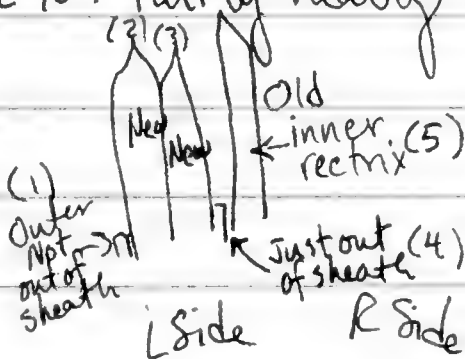 (2) (3)
Old
New
New
inner (5)
rectrix
(1)
Outer
Not
out of
sheath
Just out (4)
of sheath
L Side R Side